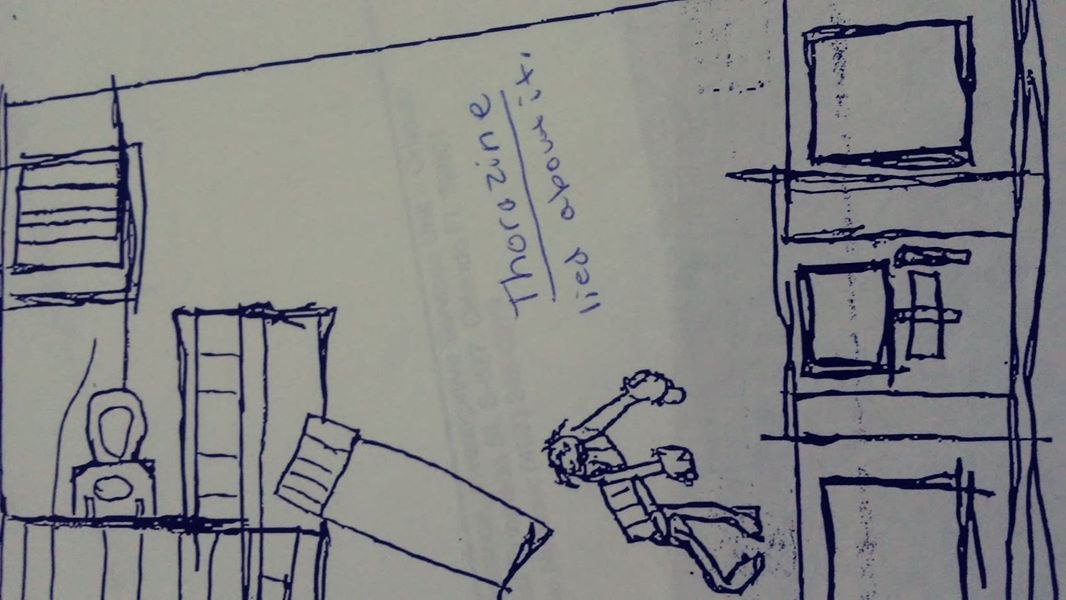 Thorazine
lied about it.